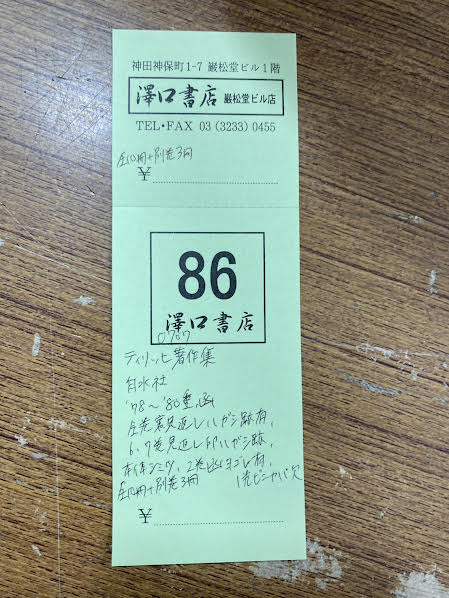 神田神保町1-7 巌松堂ビル1階
澤口書店 巌松堂ビル店
TEL・FAX 03 (3233) 0455
全10冊+別巻3冊
¥
86
澤口書店
0707
ティリッヒ著作集
白水社
'78〜'80重、函
全巻裏見返しハガシ跡有、
6、7巻見返し印ハガシ跡、
本体シミ少、2巻函ヨゴレ有、
全10冊+別巻3冊 1巻ビニカバ欠
¥